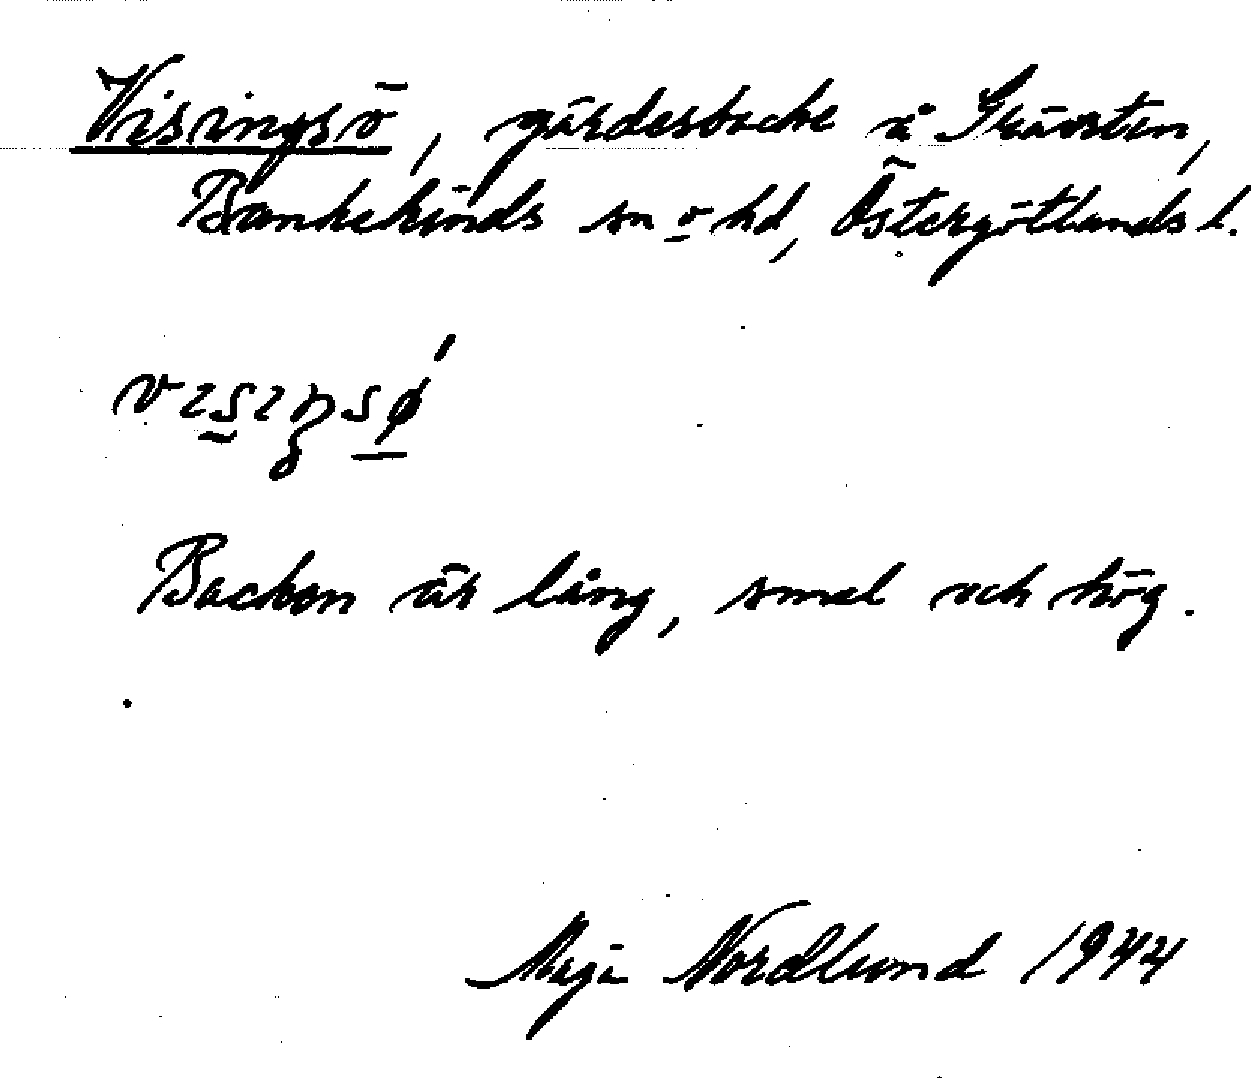 Visingsö, gärdesbacke å Grävsten,
Bankekinds sn o hd, Östergötlands l.
Backen är lång, smal och hög.
Maja Nordlund 1944